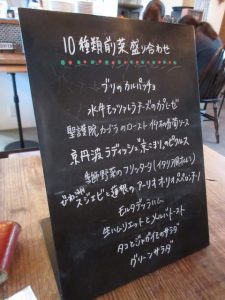 10種類前菜盛り合わせ
ブリのカルパッチョ
水牛モッツァレラチーズのカプレーゼ
聖護院カブラのロースト イタリア葡萄ソース
京丹波ラディッシュ 京にんじんのピクルス
季節野菜のフリッタータ(イタリア風オムレツ)
びわ湖スジエビと蓮根のアーリオオリオペペロンチーノ
モルタデッラハム
生ハムリエットとメルバトースト
タコとジャガイモのサラダ
グリーンサラダ